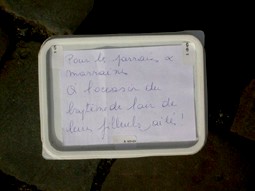 Pour le parrain &
marraine
A l'occasion du
baptême de l'air de
leur filleul